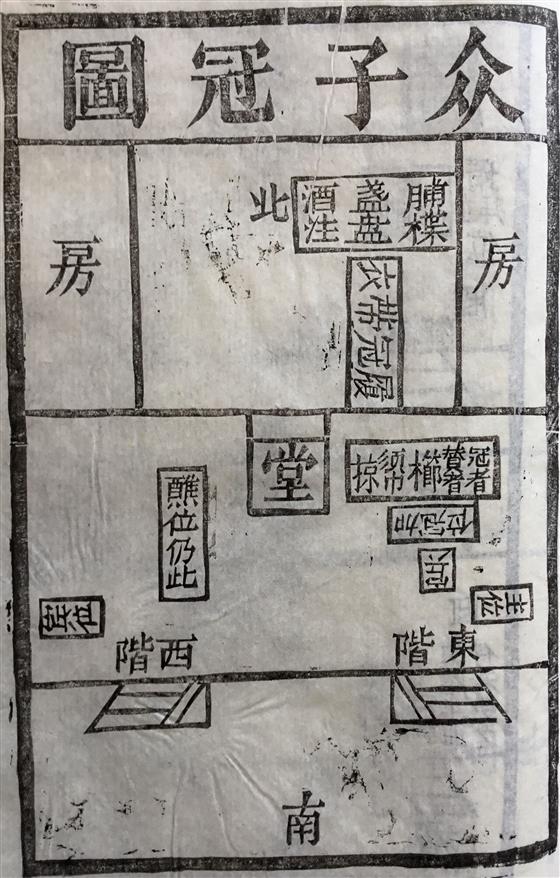 众子冠圖
房
脯楪
盞盤
酒注
北
房
衣帶冠履
堂
冠者
賛者
櫛
掠
加冠位
賓
主位
醮位仍此
賓位
東階
西階
南